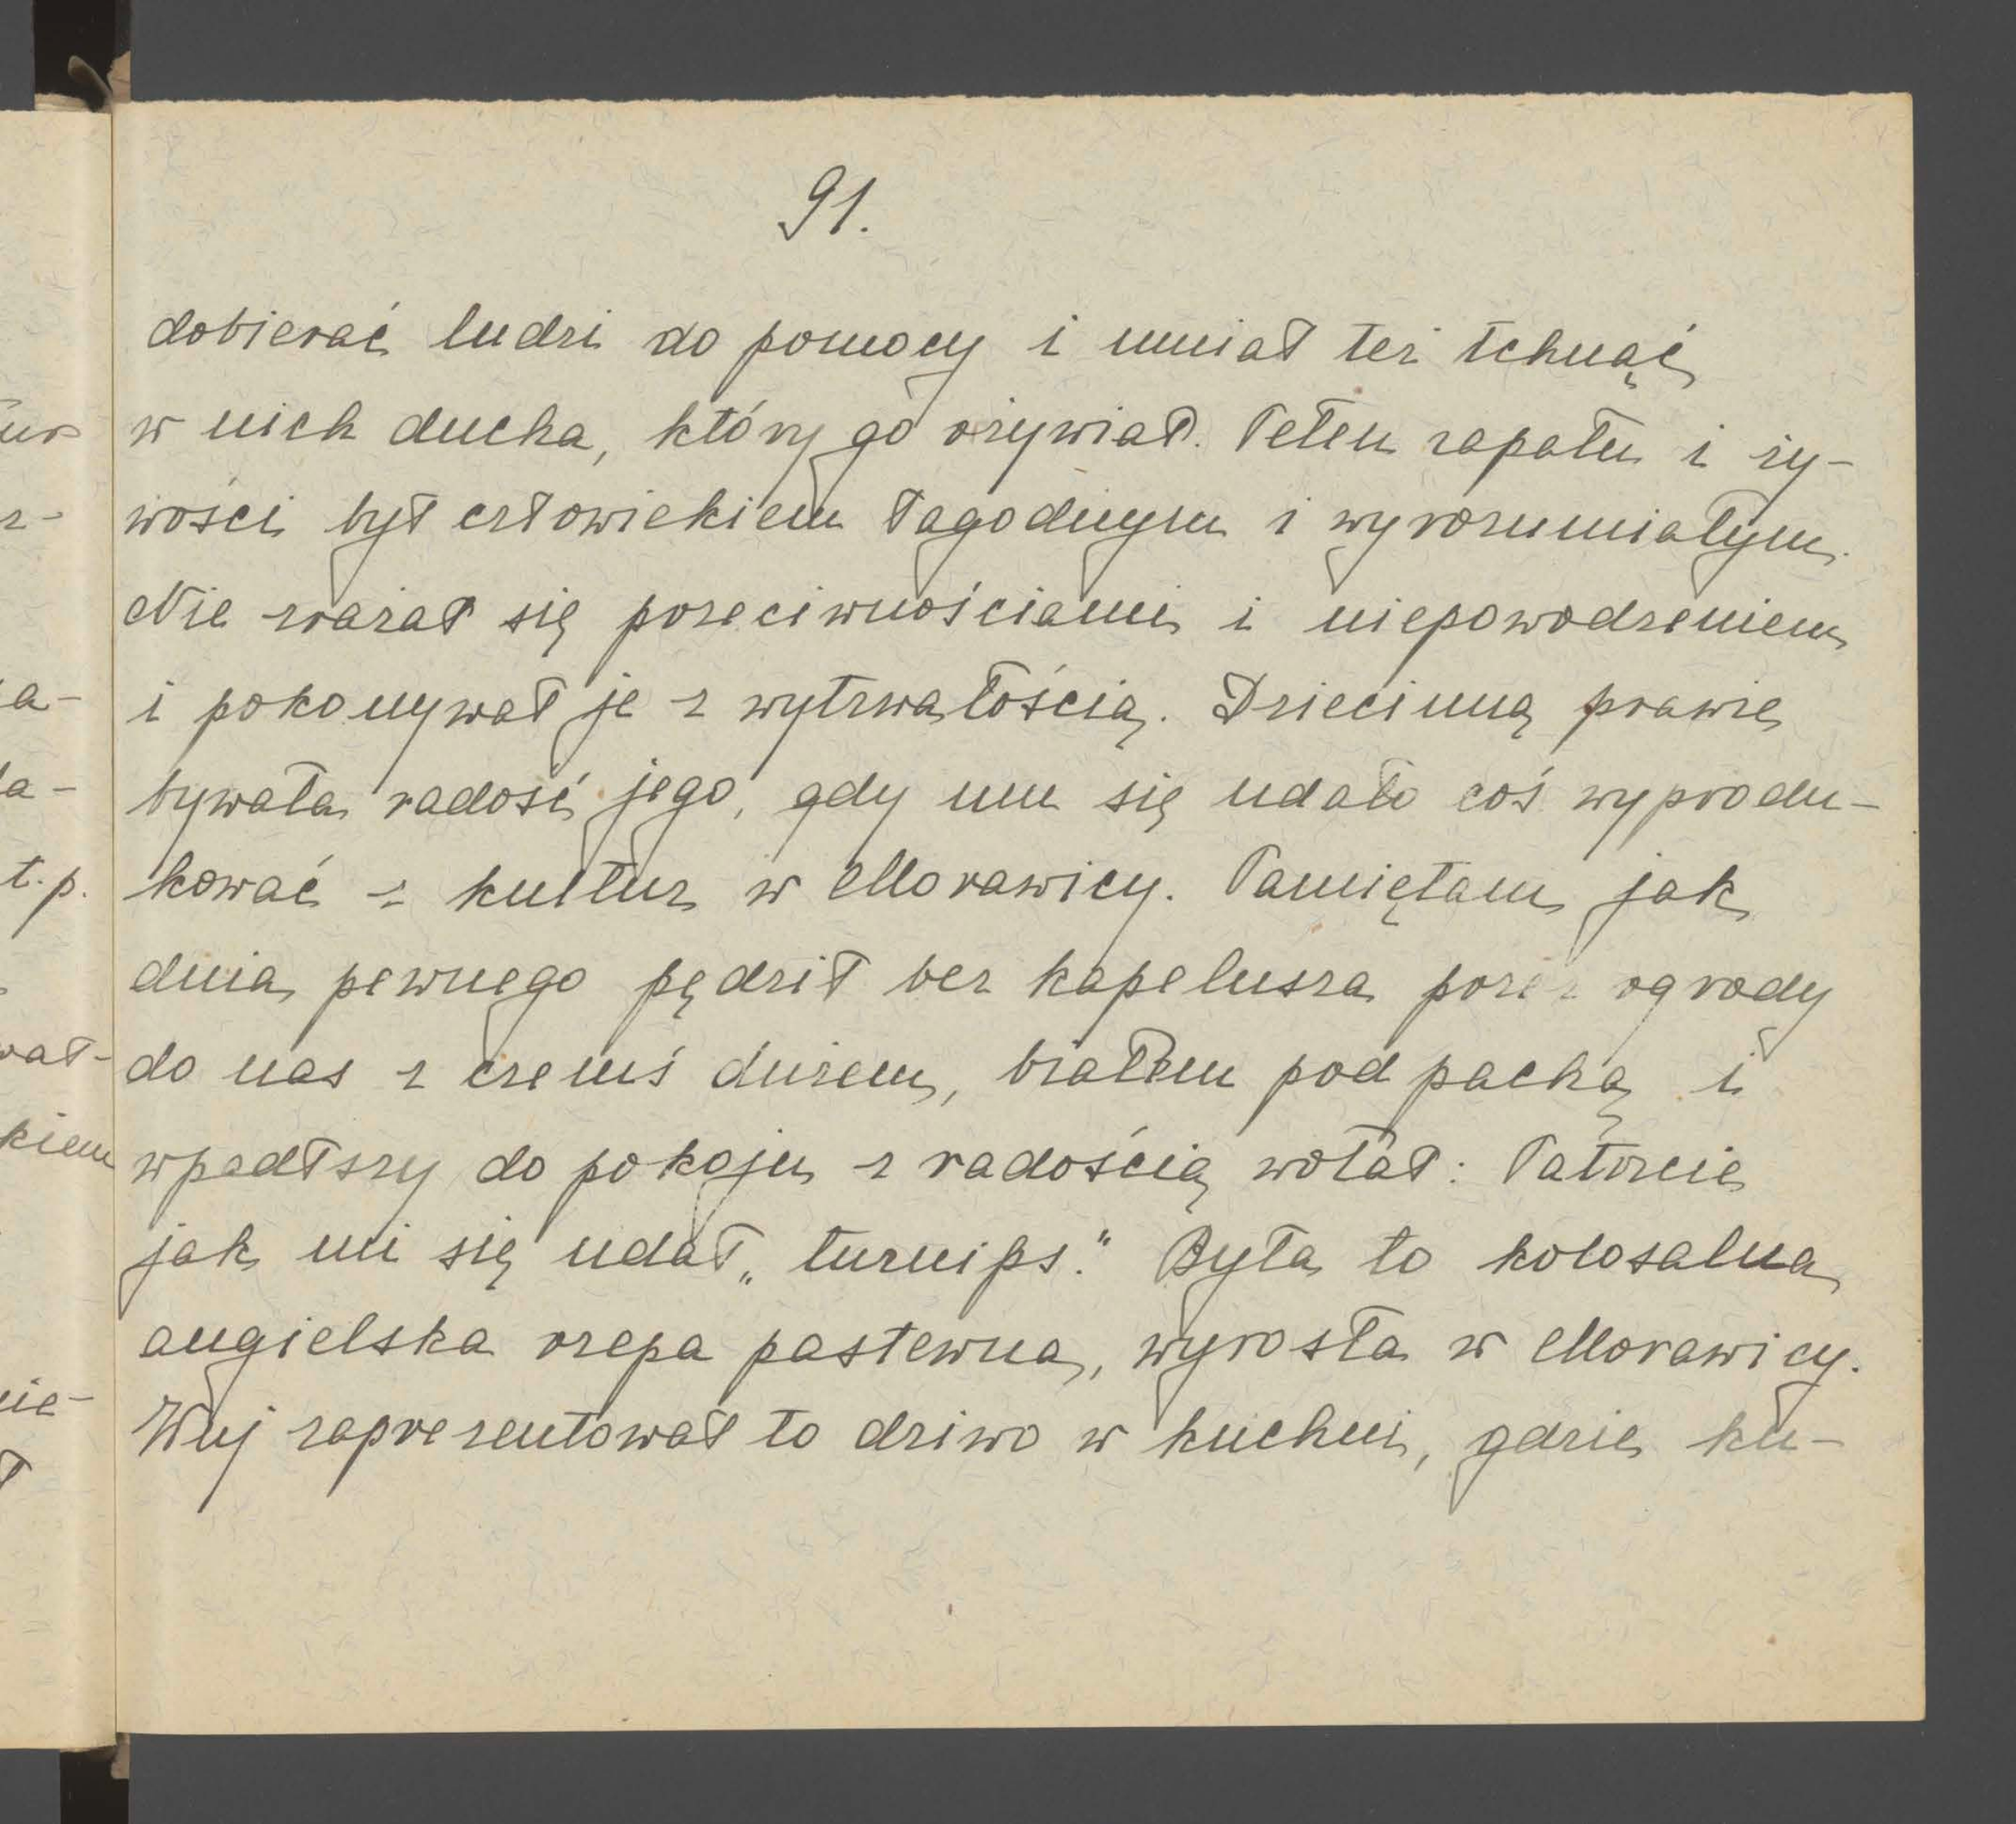 91.
dobierać ludzi do pomocy i umiał też tchnąć
w nich ducha, który go ożywiał. Pełen zapału i ży-
wości był człowiekiem łagodnym i wyrozumiałym.
Nie zrażał się przeciwnościami i niepowodzeniem
i pokonywał je z wytrwałością. Dziecinną prawie
bywała radość jego, gdy mu się udało coś wyprodu-
kować z kultur w Morawicy. Pamiętam jak
dnia pewnego pędził bez kapelusza przez ogrody
do nas z czemś dużem, białem pod pachą i
wpadłszy do pokoju z radością wołał: Patrzcie
jak mi się udał „turnips." Była to kolosalna
angielska rzepa pastewna, wyrosła w Morawicy.
Wuj zaprezentował to dziwo w kuchni, gdzie ku-